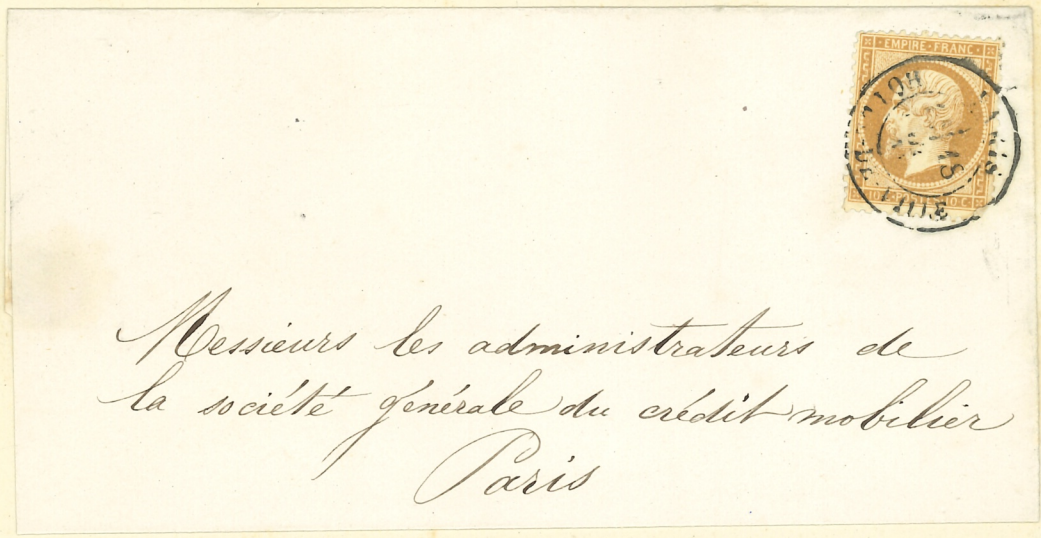 EMPIRE FRANC
PARIS
18
10 C POSTES 10 C
Messieurs les administrateurs de
la société générale du crédit mobilier
Paris